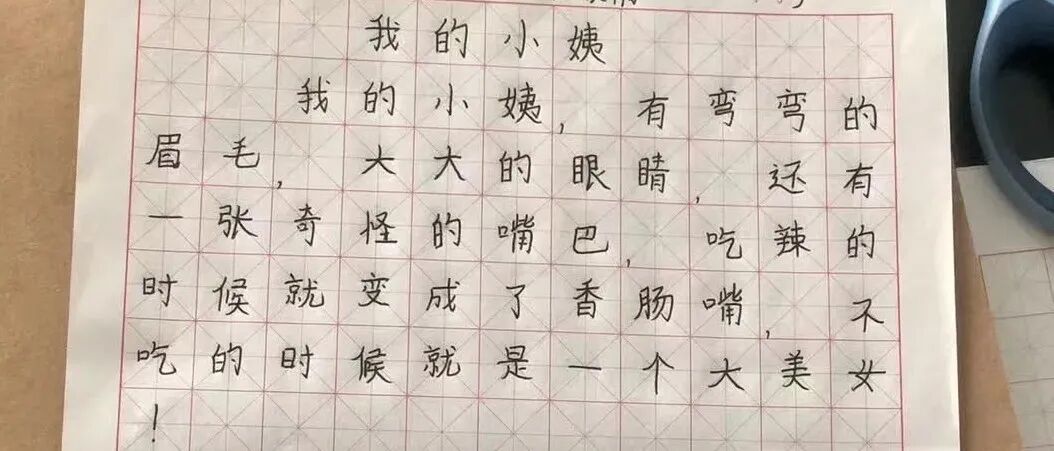 我的小姨
我的小姨,有弯弯的
眉毛,大大的眼睛,还有
一张奇怪的嘴巴,吃辣的
时候就变成了香肠嘴,不
吃的时候就是一个大美女
!